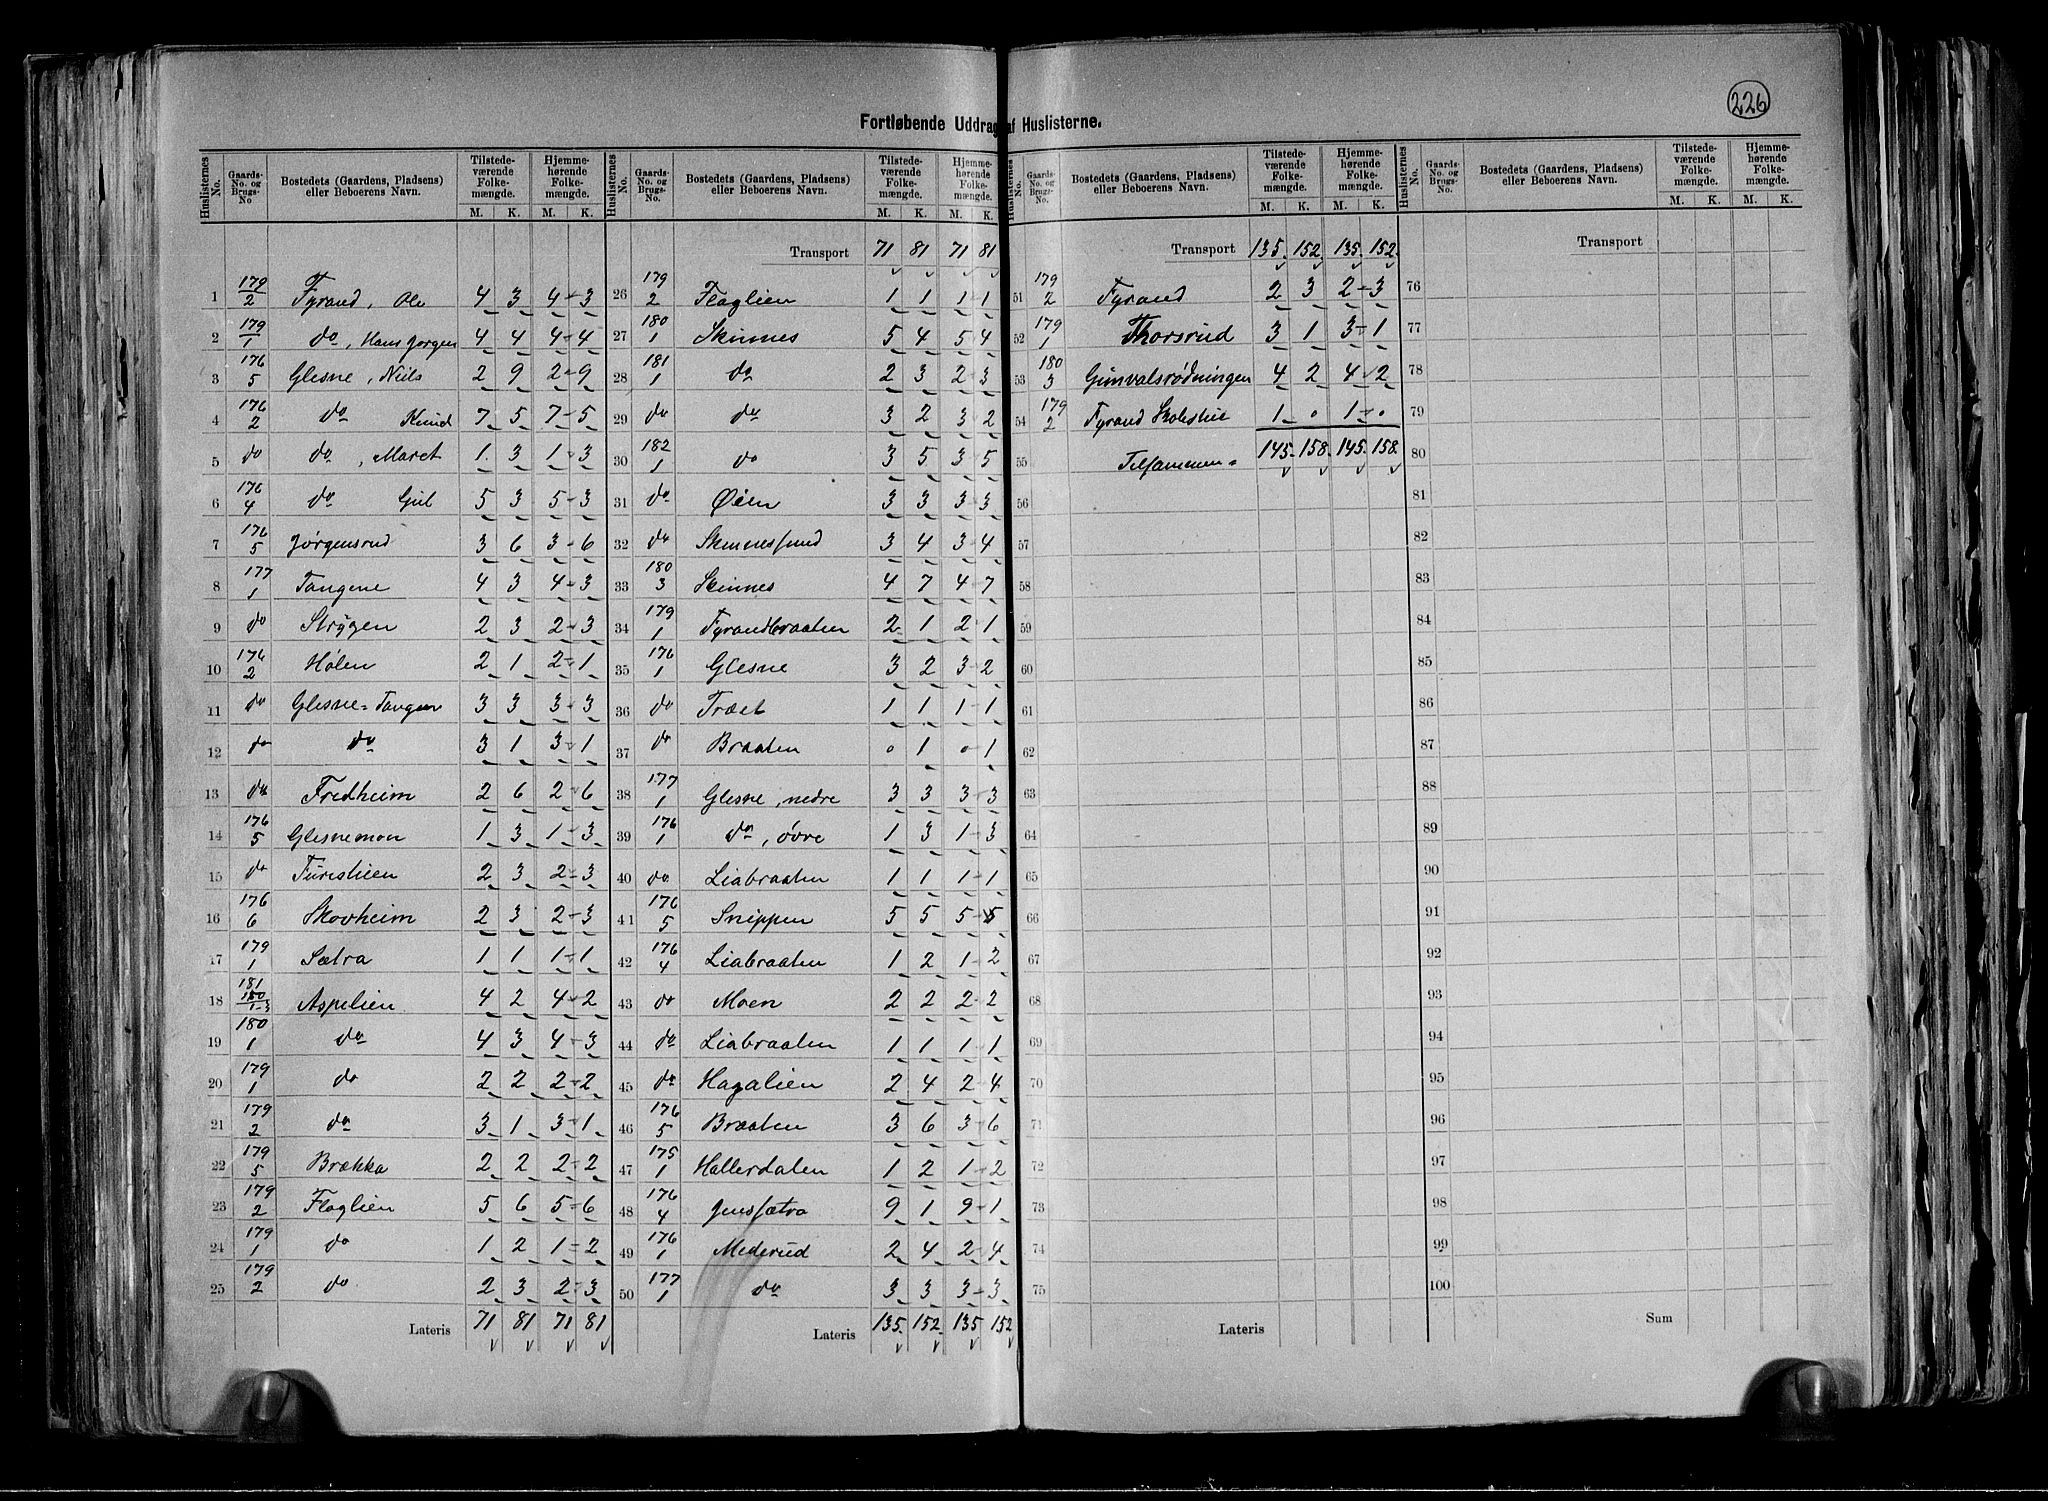 226
Fortløbende Uddrag af Huslisterne.
Huslisternes No. Gaards-No. og Brugs-No Bostedets (Gaardens, Pladsens) eller Beboerens Navn. Tilstede-værende Folke-mængde. M. K. Hjemme-hørende Folke-mængde. M. K.
1 179/2 Fyrand, Ole 4 3 4 3
2 179/1 do, Hans Jørgen 4 4 4 4
3 176/5 Glesne, Niels 2 9 2 9
4 176/2 do Knud 7 5 7 5
5 do do, Maret 1 3 1 3
6 176/4 do Gul 5 3 5 3
7 176/5 Jørgensrud 3 6 3 6
8 177/1 Tangene 4 3 4 3
9 do Strygen 2 3 2 3
10 176/2 Hølen 2 1 2 1
11 do Glesne=Tangen 3 3 3 3
12 do do 3 1 3 1
13 do Fredheim 2 6 2 6
14 176/5 Glesnemon 1 3 1 3
15 do 2 3 2 3
16 176/6 Skovheim 2 3 2 3
17 179/1 Sætra 1 1 1 1
18 181 180/1-3 Aspelien 4 2 4 2
19 180/1 do 4 3 4 3
20 179/1 do 2 2 2 2
21 179/2 do 3 1 3 1
22 179/5 Brækka 2 2 2 2
23 179/2 Flaglien 5 6 5 6
24 179/1 do 1 2 1 2
25 179/2 do 2 3 2 3
Lateris 71 81 71 81
Huslisternes No. Gaards-No. og Brugs-No. Bostedets (Gaardens, Pladsens) eller Beboerens Navn. Tilstede-værende Folke-mængde. M. K. Hjemme-hørende Folke-mængde. M. K.
Transport 71 81 71 81
26 179/2 Flaglien 1 1 1 1
27 180/1 Skinnes 5 4 5 4
28 181/1 do 2 3 2 3
29 do do 3 2 3 2
30 182/1 do 3 5 3 5
31 do Øien 3 3 3 3
32 do Skinnessund 3 4 3 4
33 180/3 Skinnes 4 7 4 7
34 179/1 Fyrandbraaten 2 1 2 1
35 176/1 Glesne 3 2 3 2
36 do Træet 1 1 1 1
37 do Braaten 0 1 0 1
38 177/1 Glesne, nedre 3 3 3 3
39 176/1 do, øvre 1 3 1 3
40 do Liabraaten 1 1 1 1
41 176/5 Snippen 5 5 5 5
42 176/4 Liabraaten 1 2 1 2
43 do Moen 2 2 2 2
44 do Liabraaten 1 1 1 1
45 do Hagalien 2 4 2 4
46 176/5 Braaten 3 6 3 6
47 175/1 Hallerdalen 1 2 1 2
48 176/4 Jenssætra 9 1 9 1
49 176/1 Mederud 2 4 2 4
50 177/1 do 3 3 3 3
Lateris 135 152 135 152
Huslisternes No. Gaards-No. og Brugs-No. Bostedets (Gaardens, Pladsens) eller Beboerens Navn. Tilstede-værende Folke-mængde. M. K. Hjemme-hørende Folke-mængde. M. K.
Transport 135 152 135 152
51 179/2 Fyrand 2 3 2 3
52 179/1 Thorsrud 3 1 3 1
53 180/3 Gunvalsrødningen 4 2 4 2
54 179/2 Fyrand 1 0 1 0
55 Tilsammen = 145 158 145 158
56
57
58
59
60
61
62
63
64
65
66
67
68
69
70
71
72
73
74
75
Lateris
Huslisternes No. Gaards-No. og Brugs-No. Bostedets (Gaardens, Pladsens) eller Beboerens Navn. Tilstede-værende Folke-mængde. M. K. Hjemme-hørende Folke-mængde. M. K.
Transport
76
77
78
79
80
81
82
83
84
85
86
87
88
89
90
91
92
93
94
95
96
97
98
99
100
Sum